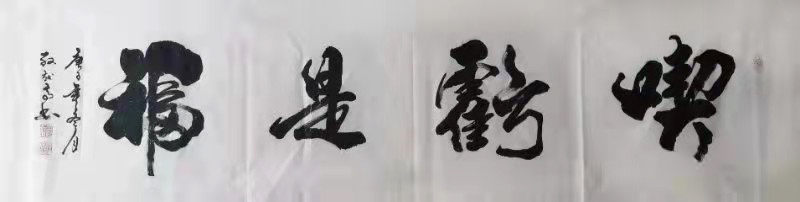 喫虧是福
庚子年冬月